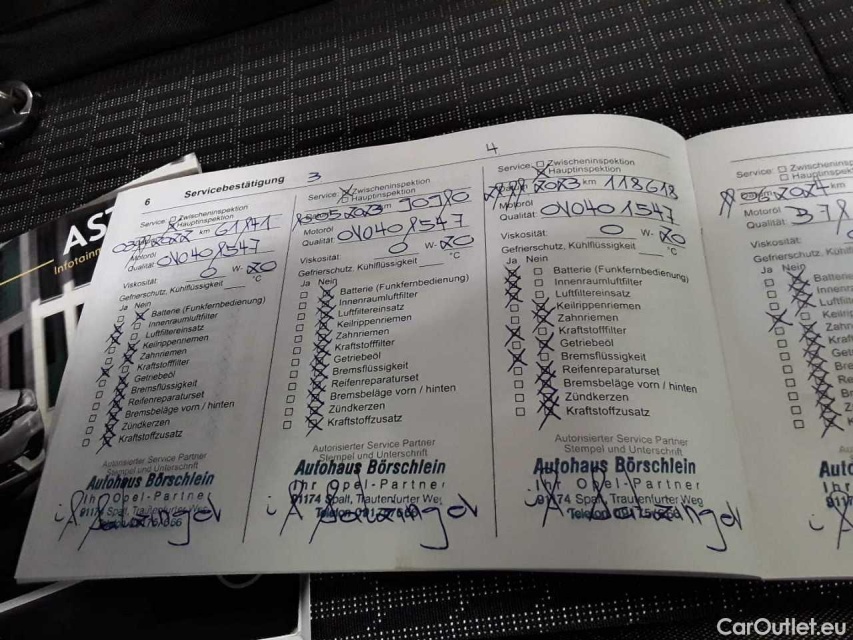 AST
Infotain
6 Servicebestätigung 3
Service: Zwischeninspektion
Hauptinspektion
km 61841
Motoröl
Qualität: OV0401547
Viskosität: 0 W- 20
Gefrierschutz, Kühlflüssigkeit °C
Ja Nein
Batterie (Funkfernbedienung)
Innenraumluftfilter
Luftfiltereinsatz
Keilrippenriemen
Zahnriemen
Kraftstofffilter
Getriebeöl
Bremsflüssigkeit
Reifenreparaturset
Bremsbeläge vorn / hinten
Zündkerzen
Kraftstoffzusatz
Autorisierter Service Partner
Stempel und Unterschrift
Autohaus Börschlein
Ihr Opel-Partner
91174 Spalt, Trautenfurter Weg
Telefon
Service: Zwischeninspektion
Hauptinspektion
Motoröl
Qualität: OV0401547
Viskosität: 0 W- 20
Gefrierschutz, Kühlflüssigkeit °C
Ja Nein
Batterie (Funkfernbedienung)
Innenraumluftfilter
Luftfiltereinsatz
Keilrippenriemen
Zahnriemen
Kraftstofffilter
Getriebeöl
Bremsflüssigkeit
Reifenreparaturset
Bremsbeläge vorn / hinten
Zündkerzen
Kraftstoffzusatz
Autorisierter Service Partner
Stempel und Unterschrift
Autohaus Börschlein
Ihr Opel-Partner
91174 Spalt, Trautenfurter Weg
Telefon
4
Service: Zwischeninspektion
Hauptinspektion
2023 km 118618
Motoröl
Qualität: OV0401547
Viskosität: 0 W- 20
Gefrierschutz, Kühlflüssigkeit °C
Ja Nein
Batterie (Funkfernbedienung)
Innenraumluftfilter
Luftfiltereinsatz
Keilrippenriemen
Zahnriemen
Kraftstofffilter
Getriebeöl
Bremsflüssigkeit
Reifenreparaturset
Bremsbeläge vorn / hinten
Zündkerzen
Kraftstoffzusatz
Autorisierter Service Partner
Stempel und Unterschrift
Autohaus Börschlein
Ihr Opel-Partner
91174 Spalt, Trautenfurter Weg
Telefon
Service: Zwischeninspektion
Hauptinspektion
2024 km
Motoröl
Qualität:
Viskosität:
Gefrierschutz, Kühl
Ja Nein
Batterie
Innenra
Luftfil
Keilrip
Zahnri
Kraft
Getri
Bre
Reif
Br
Z
K
Auto
Ihr
CarOutlet.eu